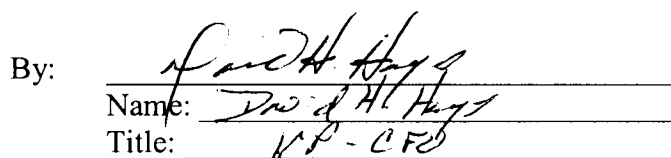 By: David H. Hays
Name: David H. Hays
Title: VP - CFO